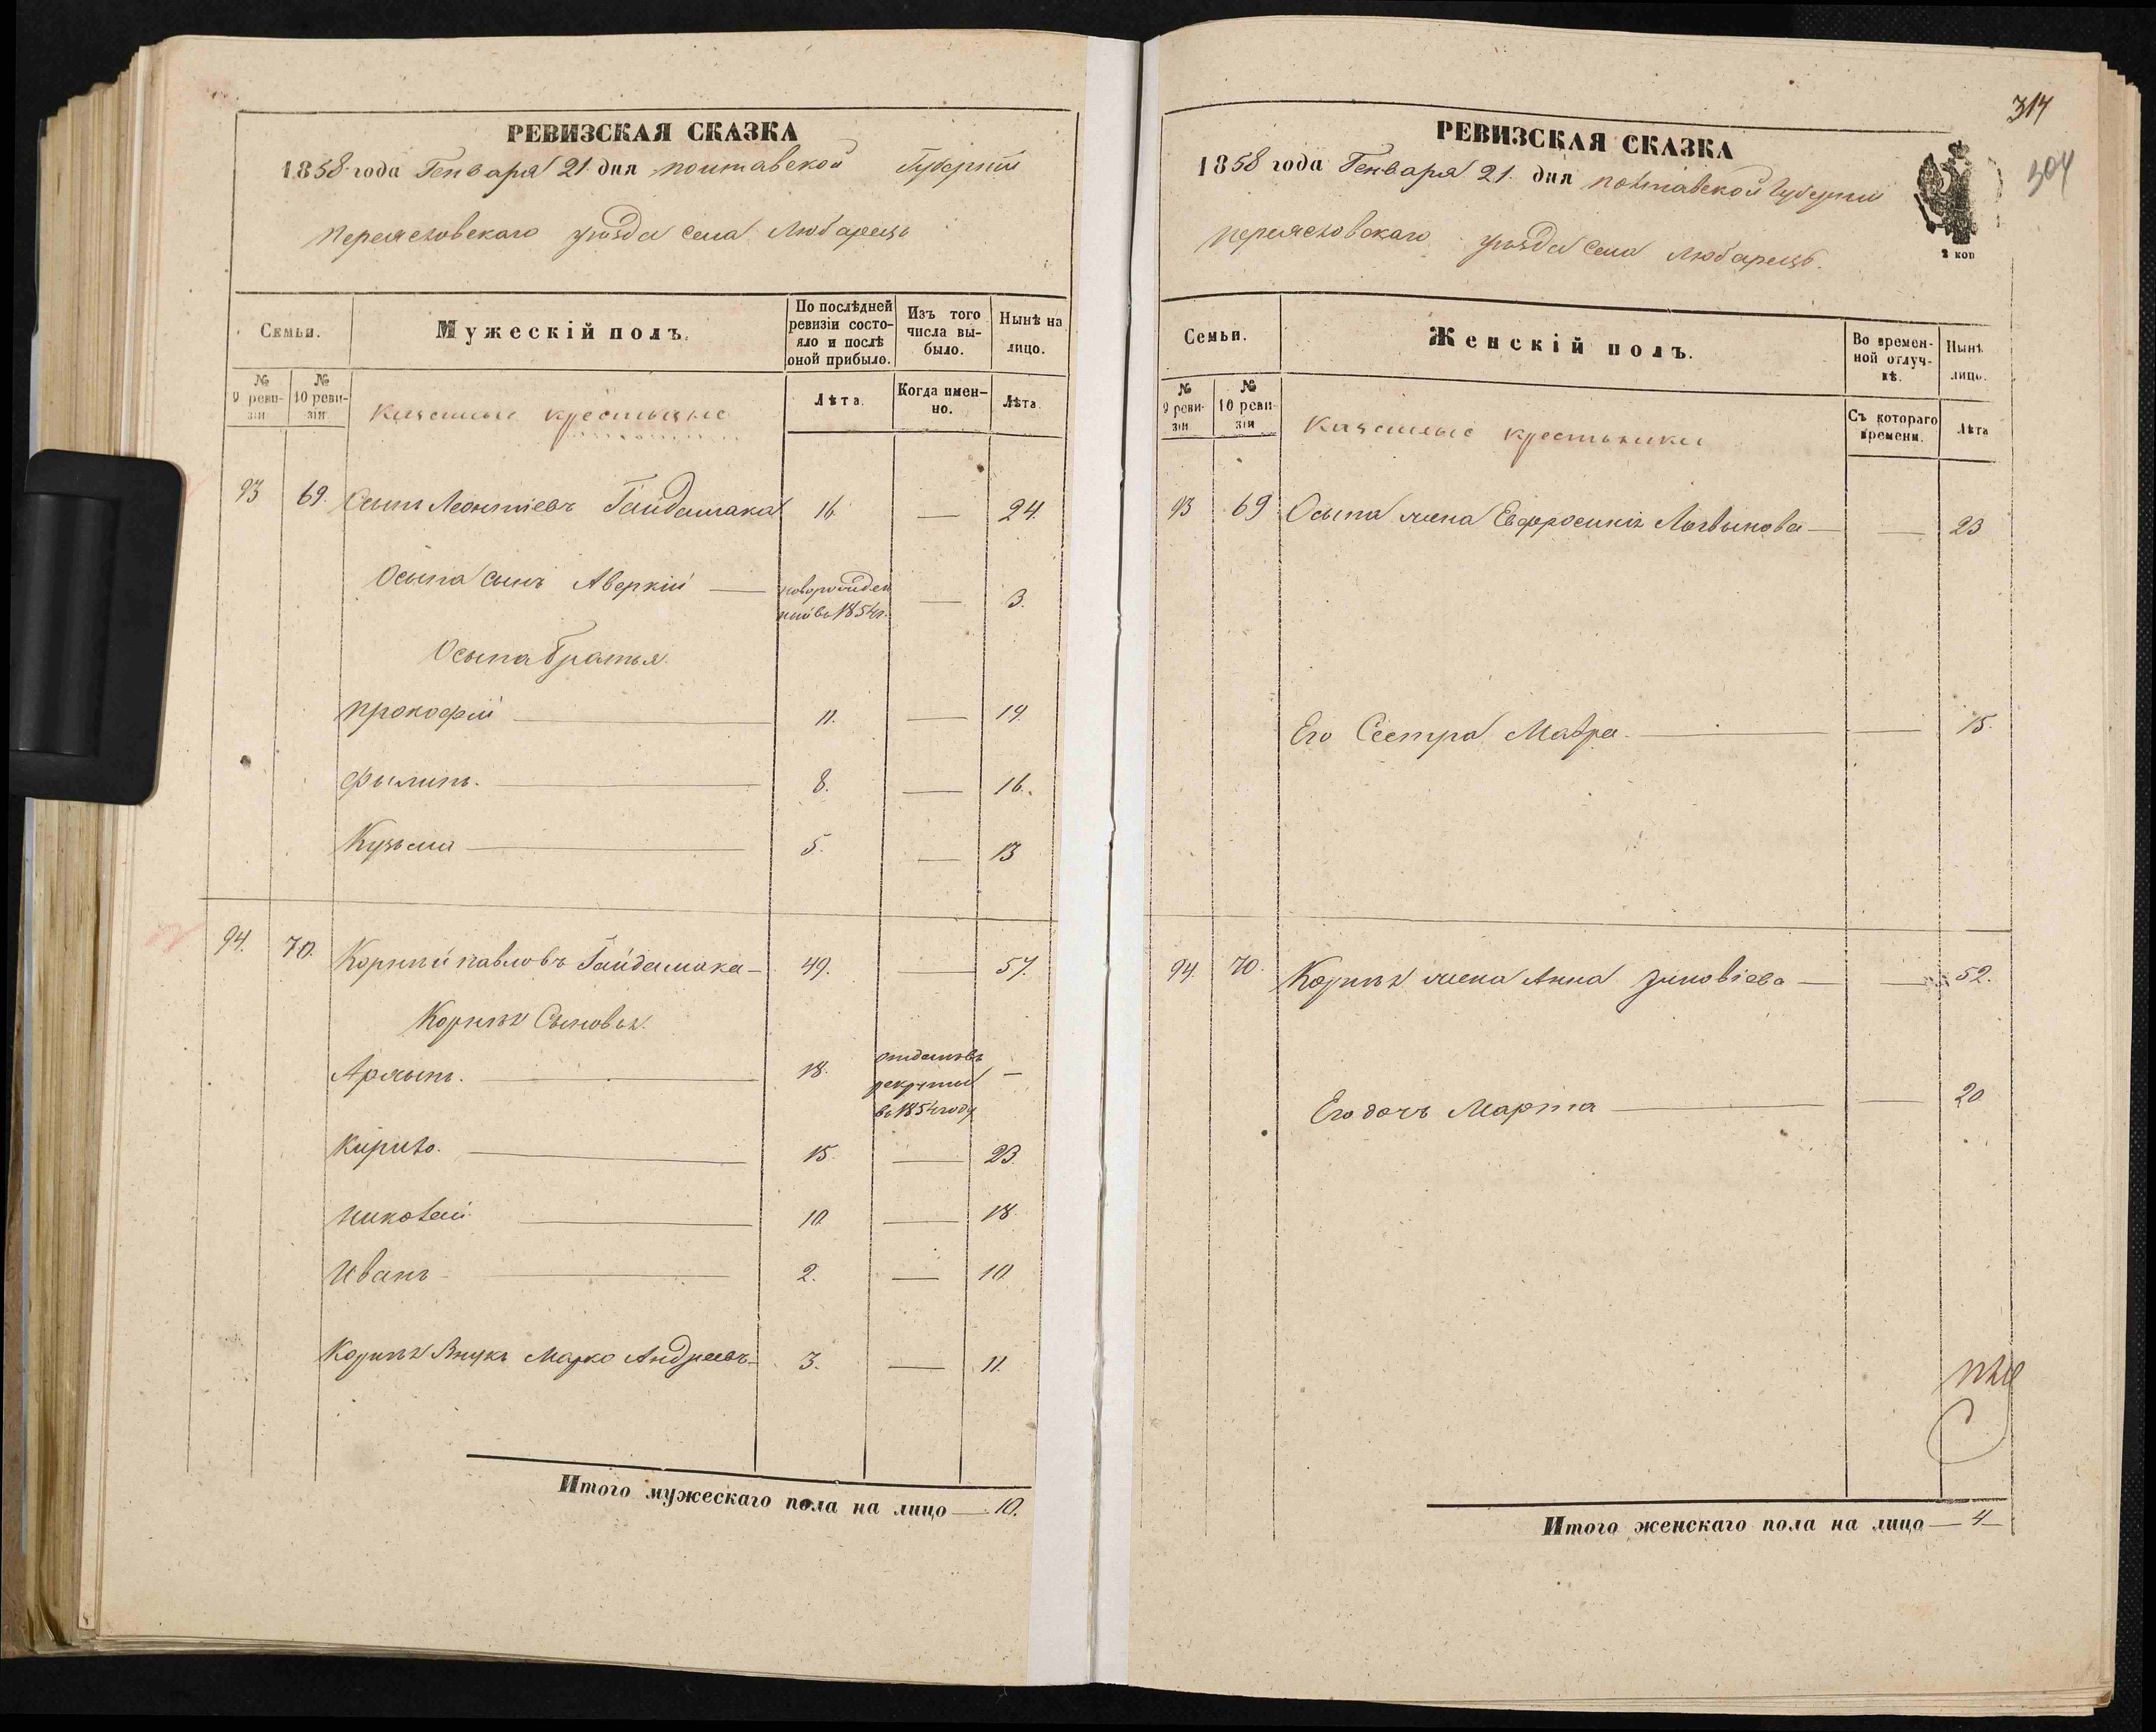 РЕВИЗСКАЯ СКАЗКА
1858 года Генваря 21 дня полтавской Губерніи
переясловскаго уѣзда села Любарецъ
Семьи.
Мужескій полъ.
По послѣдней ревизіи состояло и послѣ оной прибыло.
Изъ того числа выбыло.
Нынѣ на лицо.
№ 9 ревизіи
№ 10 ревизіи
Казенные крестьяне
Лѣта.
Когда именно.
Лѣта.
93 69. Осипъ Леонтіевъ Гайдамака 16 — 24.
Осипа сынъ Аверкій — новорожден
ный въ 1854 г. — 3.
Осипа братья.
Прокофій — 11. — 19.
Филипъ. — 8. — 16.
Кузьма — 5. — 13
94. 70. Корній павловъ Гайдамака — 49. — 57.
Корнія Сыновья.
18. отданъ въ
рекруты
въ 1854 году —
Кирило. — 15 — 23.
Николай — 10. — 18.
Иванъ — 2. — 10.
Корнія Внукъ Марко Андреевъ — 3. — 11.
Итого мужескаго пола на лицо — 10.
314
304
РЕВИЗСКАЯ СКАЗКА
1858 года Генваря 21. дня полтавской Губерніи
переясловскаго уѣзда села Любарецъ.
2 коп
Семьи.
Женскій полъ.
Во временной отлучкѣ.
Нынѣ лицо.
№ 9 ревизіи
№ 10 ревизіи
Казенные крестьянки
Съ котораго времени.
Лѣта
93 69 Осипа жена Евфросинія Логвинова — — 23
Его Сестра Мавра. — — 15.
94. 70. Корнія жена Анна Зиновіева — — 52.
Его дочь Марта — — 20
Итого женскаго пола на лицо — 4 —